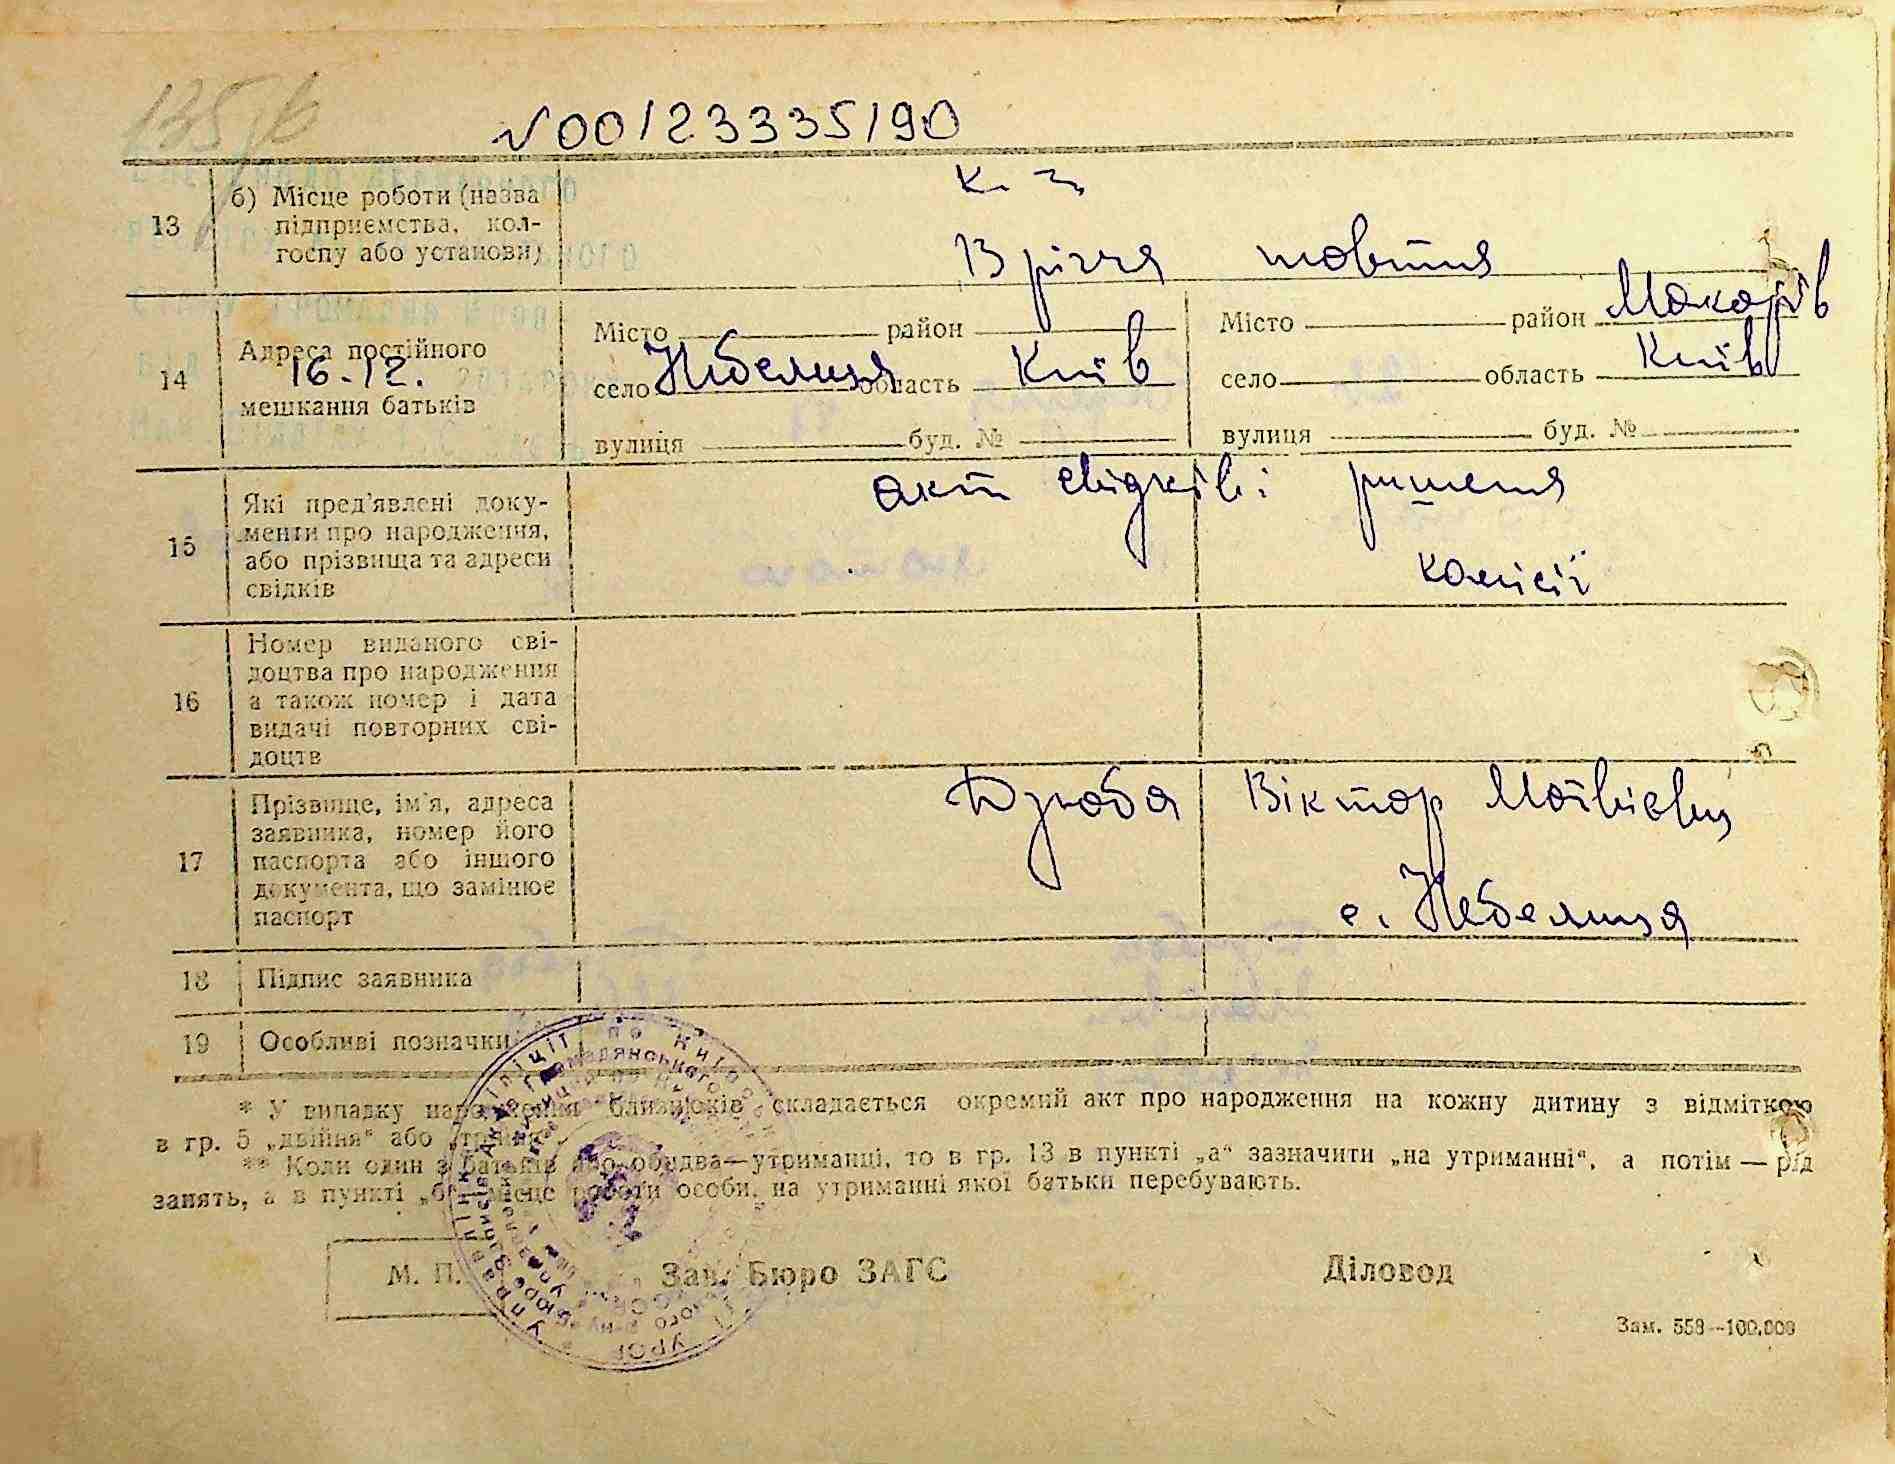 135
N00123335190
13
б) Місце роботи (назва
підприємства, кол-
госпу або установи)
к. г.
13 річчя жовтня
14
Адреса постійного
16.12.
мешкання батьків
Місто район
село Небелиця область Київ
вулиця буд. №
Місто район Макарів
село область Київ
вулиця буд. №
15
Які пред'явлені доку-
менти про народження,
або прізвища та адреси
свідків
акт свідків: ришення
комісії
16
Номер виданого сві-
доцтва про народження
а також номер і дата
видачі повторних сві-
доцтв
17
Прізвище, ім'я, адреса
заявника, номер його
паспорта або іншого
документа, що замінює
паспорт
Дзюба Віктор Матвієвич
с. Небелиця
18
Підпис заявника
19
Особливі позначки
* У випадку народження близнюків складається окремий акт про народження на кожну дитину з відміткою
в гр. 5 „двійня" або „трійня".
** Коли один з батьків або обидва—утриманці, то в гр. 13 в пункті „а" зазначити „на утриманні", а потім — рід
занять, а в пункті „б" місце роботи особи, на утриманні якої батьки перебувають.
М. П.
Зав. Бюро ЗАГС
Діловод
Зам. 558—100.000